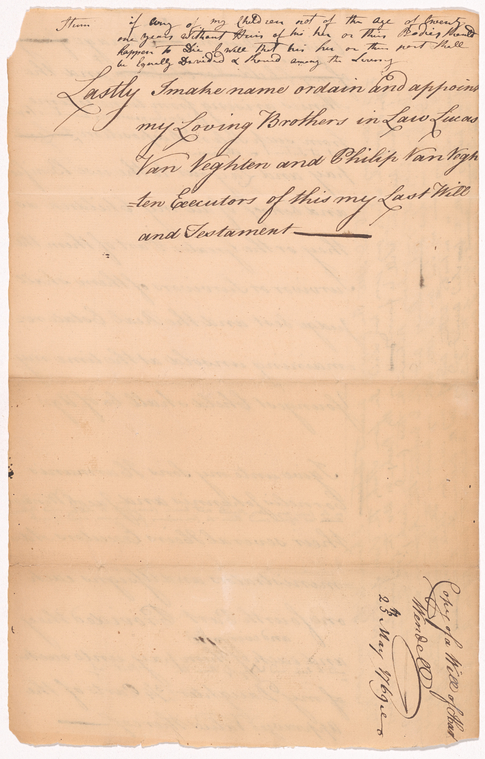 Item if any of my Children not of the age of Twenty
one years without Heirs of his her or their Bodies should
happen to Die I will that his her or their part shall
be Equally Divided & shared among the Living
Lastly I make name ordain and appoint
my Loving Brothers in Law Lucas
Van Veghten and Philip Van Vegh
=ten Executors of this my Last Will
and Testament
Copy of a Will of
Wendell
23 May 1769